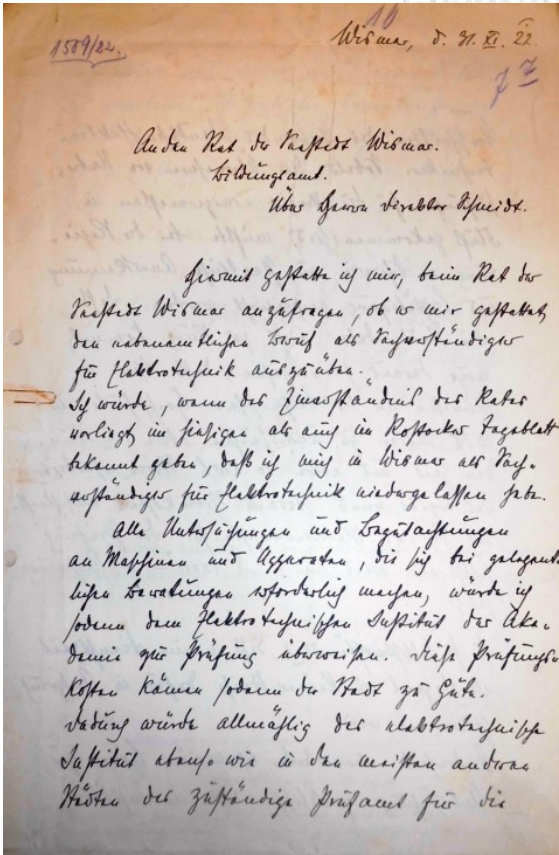 10
1509/22. Wismar, d. 31. XI. 22.
An den Rat der Seestadt Wismar.
Bildungsamt.
Über Herrn Direktor Schmidt.
Hiermit gestatte ich mir, beim Rat der
Seestadt Wismar anzufragen, ob er mir gestattet,
den nebenamtlichen Beruf als Sachverständiger
für Elektrotechnik auszuüben.
Ich würde, wenn das Einverständnis des Rates
vorliegt, im hiesigen als auch im Rostocker Tageblatt
bekannt geben, daß ich mich in Wismar als Sach-
verständiger für Elektrotechnik niedergelassen habe.
Alle Untersuchungen und Begutachtungen
an Maschinen und Apparaten, die sich bei gelegent-
lichen Beratungen erforderlich machen, würde ich
sodann dem Elektrotechnischen Institut der Aka-
demie zur Prüfung überweisen. Diese Prüfungs-
kosten kämen sodann der Stadt zu Gute.
Dadurch würde allmählig das elektrotechnische
Institut ebenso wie in den meisten anderen
Städten das zuständige Prüfamt für die